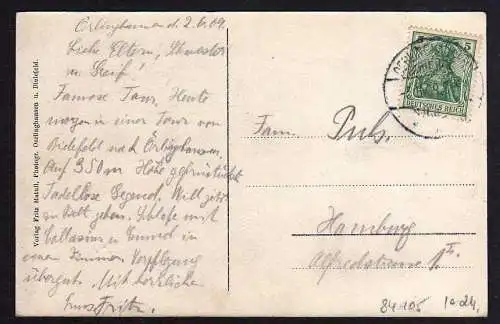 Örlinghausen d. 2.6.09.
Liebe Eltern, Schwester
u. Greif!
Famose Tour, Heute
morgen in einer Tour von
Bielefeld nach Örlinghausen.
Auf 350 m Höhe gefrühstückt
Tadellose Gegend. Will jetzt
zu Bett gehen. Schlafe mit
in einem Zimmer. Verpflegung
Mit herzlichen
Gruss Fritz.
Verlag Fritz Photogr. Oerlinghausen u. Bielefeld.
5
DEUTSCHES REICH
Fam. Puls.
Hamburg
Alfredstrasse
84105